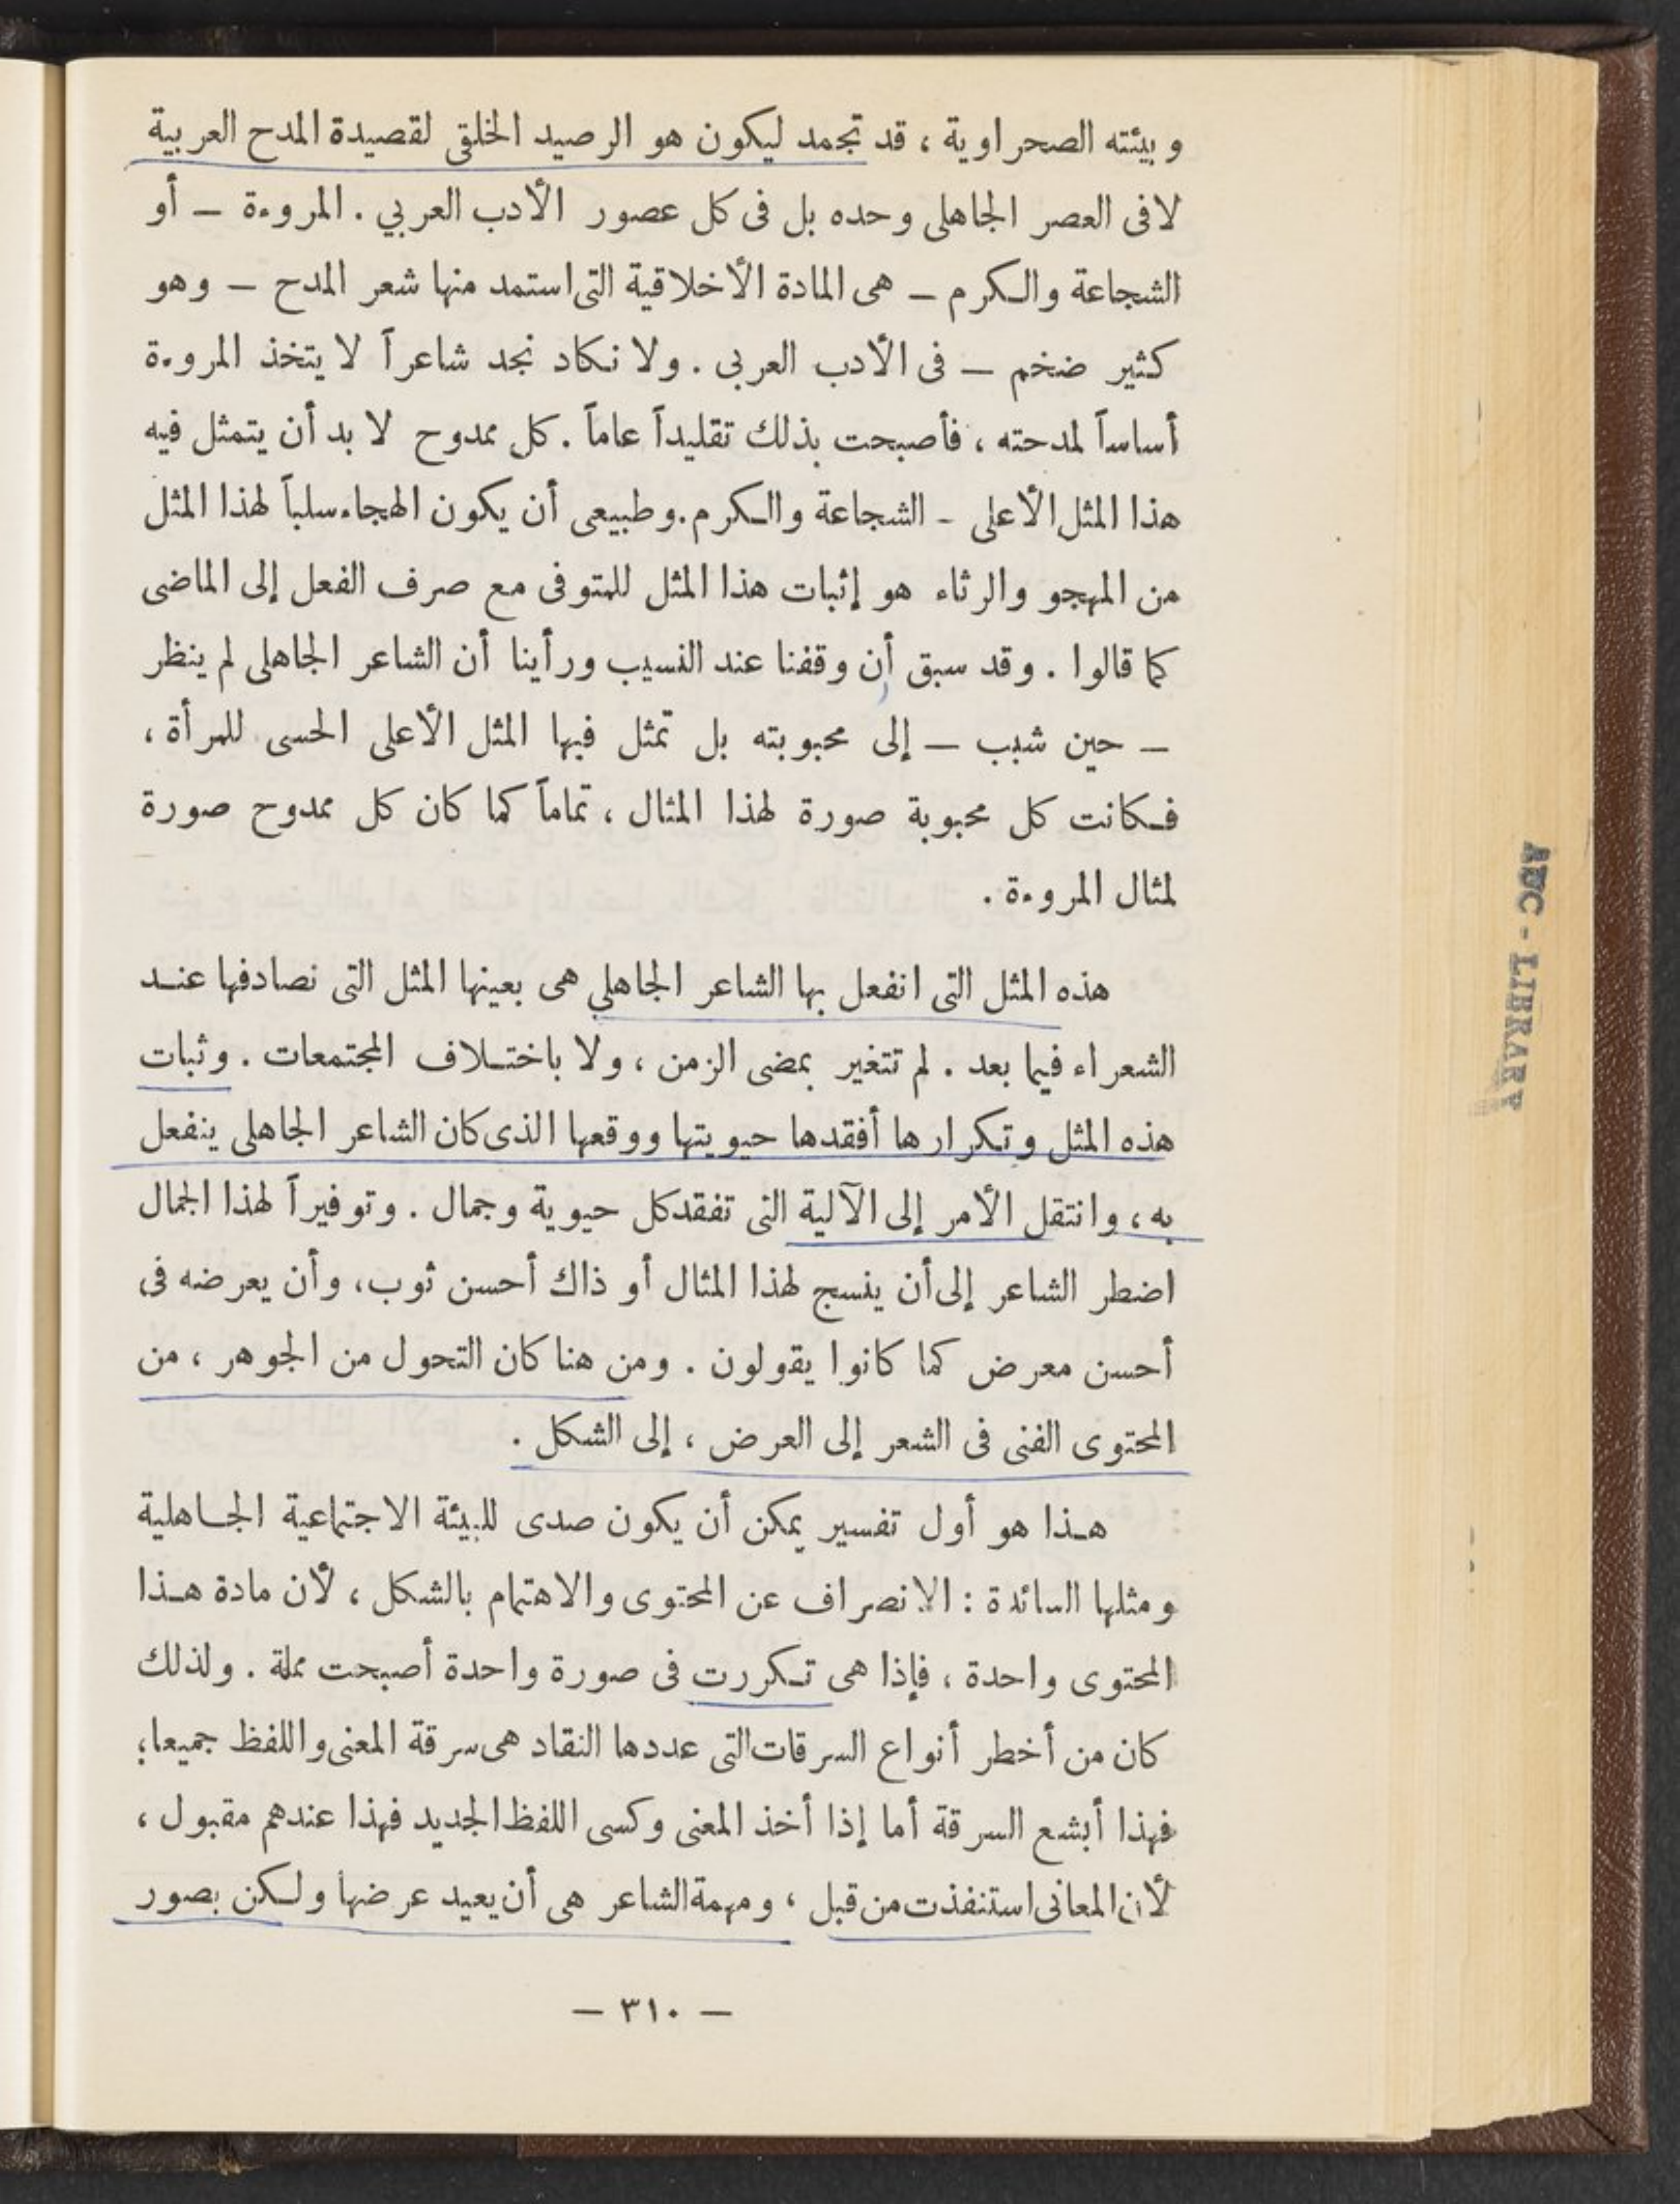 وبيئته الصحراوية ، قد تجمد ليكون هو الرصيد الخلقى لقصيدة المدح العربية
لافى العصر الجاهلى وحده بل فى كل عصور الأدب العربي . المروءة – أو
الشجاعة والكرم – هى المادة الأخلاقية التى استمد منها شعر المدح – وهو
كثير ضخم – فى الأدب العربى . ولا نكاد نجد شاعراً لا يتخذ المروءة
أساساً لمدحته ، فأصبحت بذلك تقليداً عاماً . كل ممدوح لا بد أن يتمثل فيه
هذا المثل الأعلى - الشجاعة والكرم . وطبيعى أن يكون الهجاء سلباً لهذا المثل
من المهجو والرثاء هو إثبات هذا المثل للمتوفى مع صرف الفعل إلى الماضى
كما قالوا . وقد سبق أن وقفنا عند النسيب ورأينا أن الشاعر الجاهلى لم ينظر
– حين شبب – إلى محبوبته بل تمثل فيها المثل الأعلى الحسى للمرأة ،
فكانت كل محبوبة صورة لهذا المثال ، تماماً كما كان كل ممدوح صورة
لمثال المروءة .
هذه المثل التى انفعل بها الشاعر الجاهلي هى بعينها المثل التى نصادفها عند
الشعراء فيما بعد . لم تتغير بمضى الزمن ، ولا باختلاف المجتمعات . وثبات
هذه المثل وتكرارها أفقدها حيويتها ووقعها الذى كان الشاعر الجاهلى ينفعل
به ، وانتقل الأمر إلى الآلية التى تفقد كل حيوية وجمال . وتوفيراً لهذا الجمال
اضطر الشاعر إلى أن ينسج لهذا المثال أو ذاك أحسن ثوب ، وأن يعرضه فى
أحسن معرض كما كانوا يقولون . ومن هنا كان التحول من الجوهر ، من
المحتوى الفنى فى الشعر إلى العرض ، إلى الشكل .
هذا هو أول تفسير يمكن أن يكون صدى للبيئة الاجتماعية الجاهلية
ومثلها السائدة : الانصراف عن المحتوى والاهتمام بالشكل ، لأن مادة هذا
المحتوى واحدة ، فإذا هى تكررت فى صورة واحدة أصبحت مملة . ولذلك
كان من أخطر أنواع السرقات التى عددها النقاد هى سرقة المعنى واللفظ جميعا ؛
فهذا أبشع السرقة أما إذا أخذ المعنى وكسى اللفظ الجديد فهذا عندهم مقبول ،
لأن المعانى استنفذت من قبل ، ومهمة الشاعر هى أن يعيد عرضها ولكن بصور
– ٣١٠ –
AUC - LIBRARY